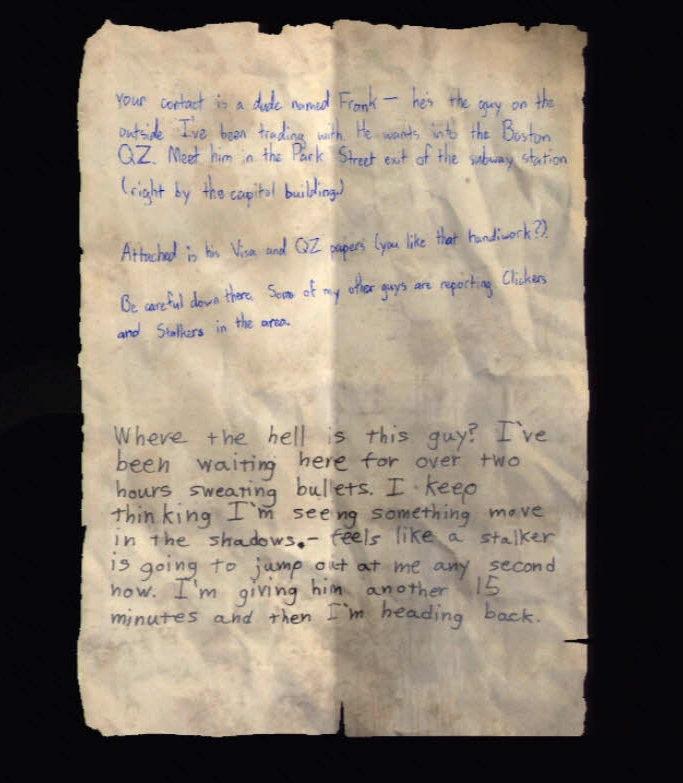 Your contact is a dude named Frank — he's the guy on the
outside I've been trading with. He wants into the Boston
QZ. Meet him in the Park Street exit of the subway station
(right by the capitol building.)
Attached is his Visa and QZ papers (you like that handiwork?).
Be careful down there. Some of my other guys are reporting Clickers
and Stalkers in the area.
Where the hell is this guy? I've
been waiting here for over two
hours sweating bullets. I keep
thinking I'm seeing something move
in the shadows. - feels like a stalker
is going to jump out at me any second
now. I'm giving him another 15
minutes and then I'm heading back.